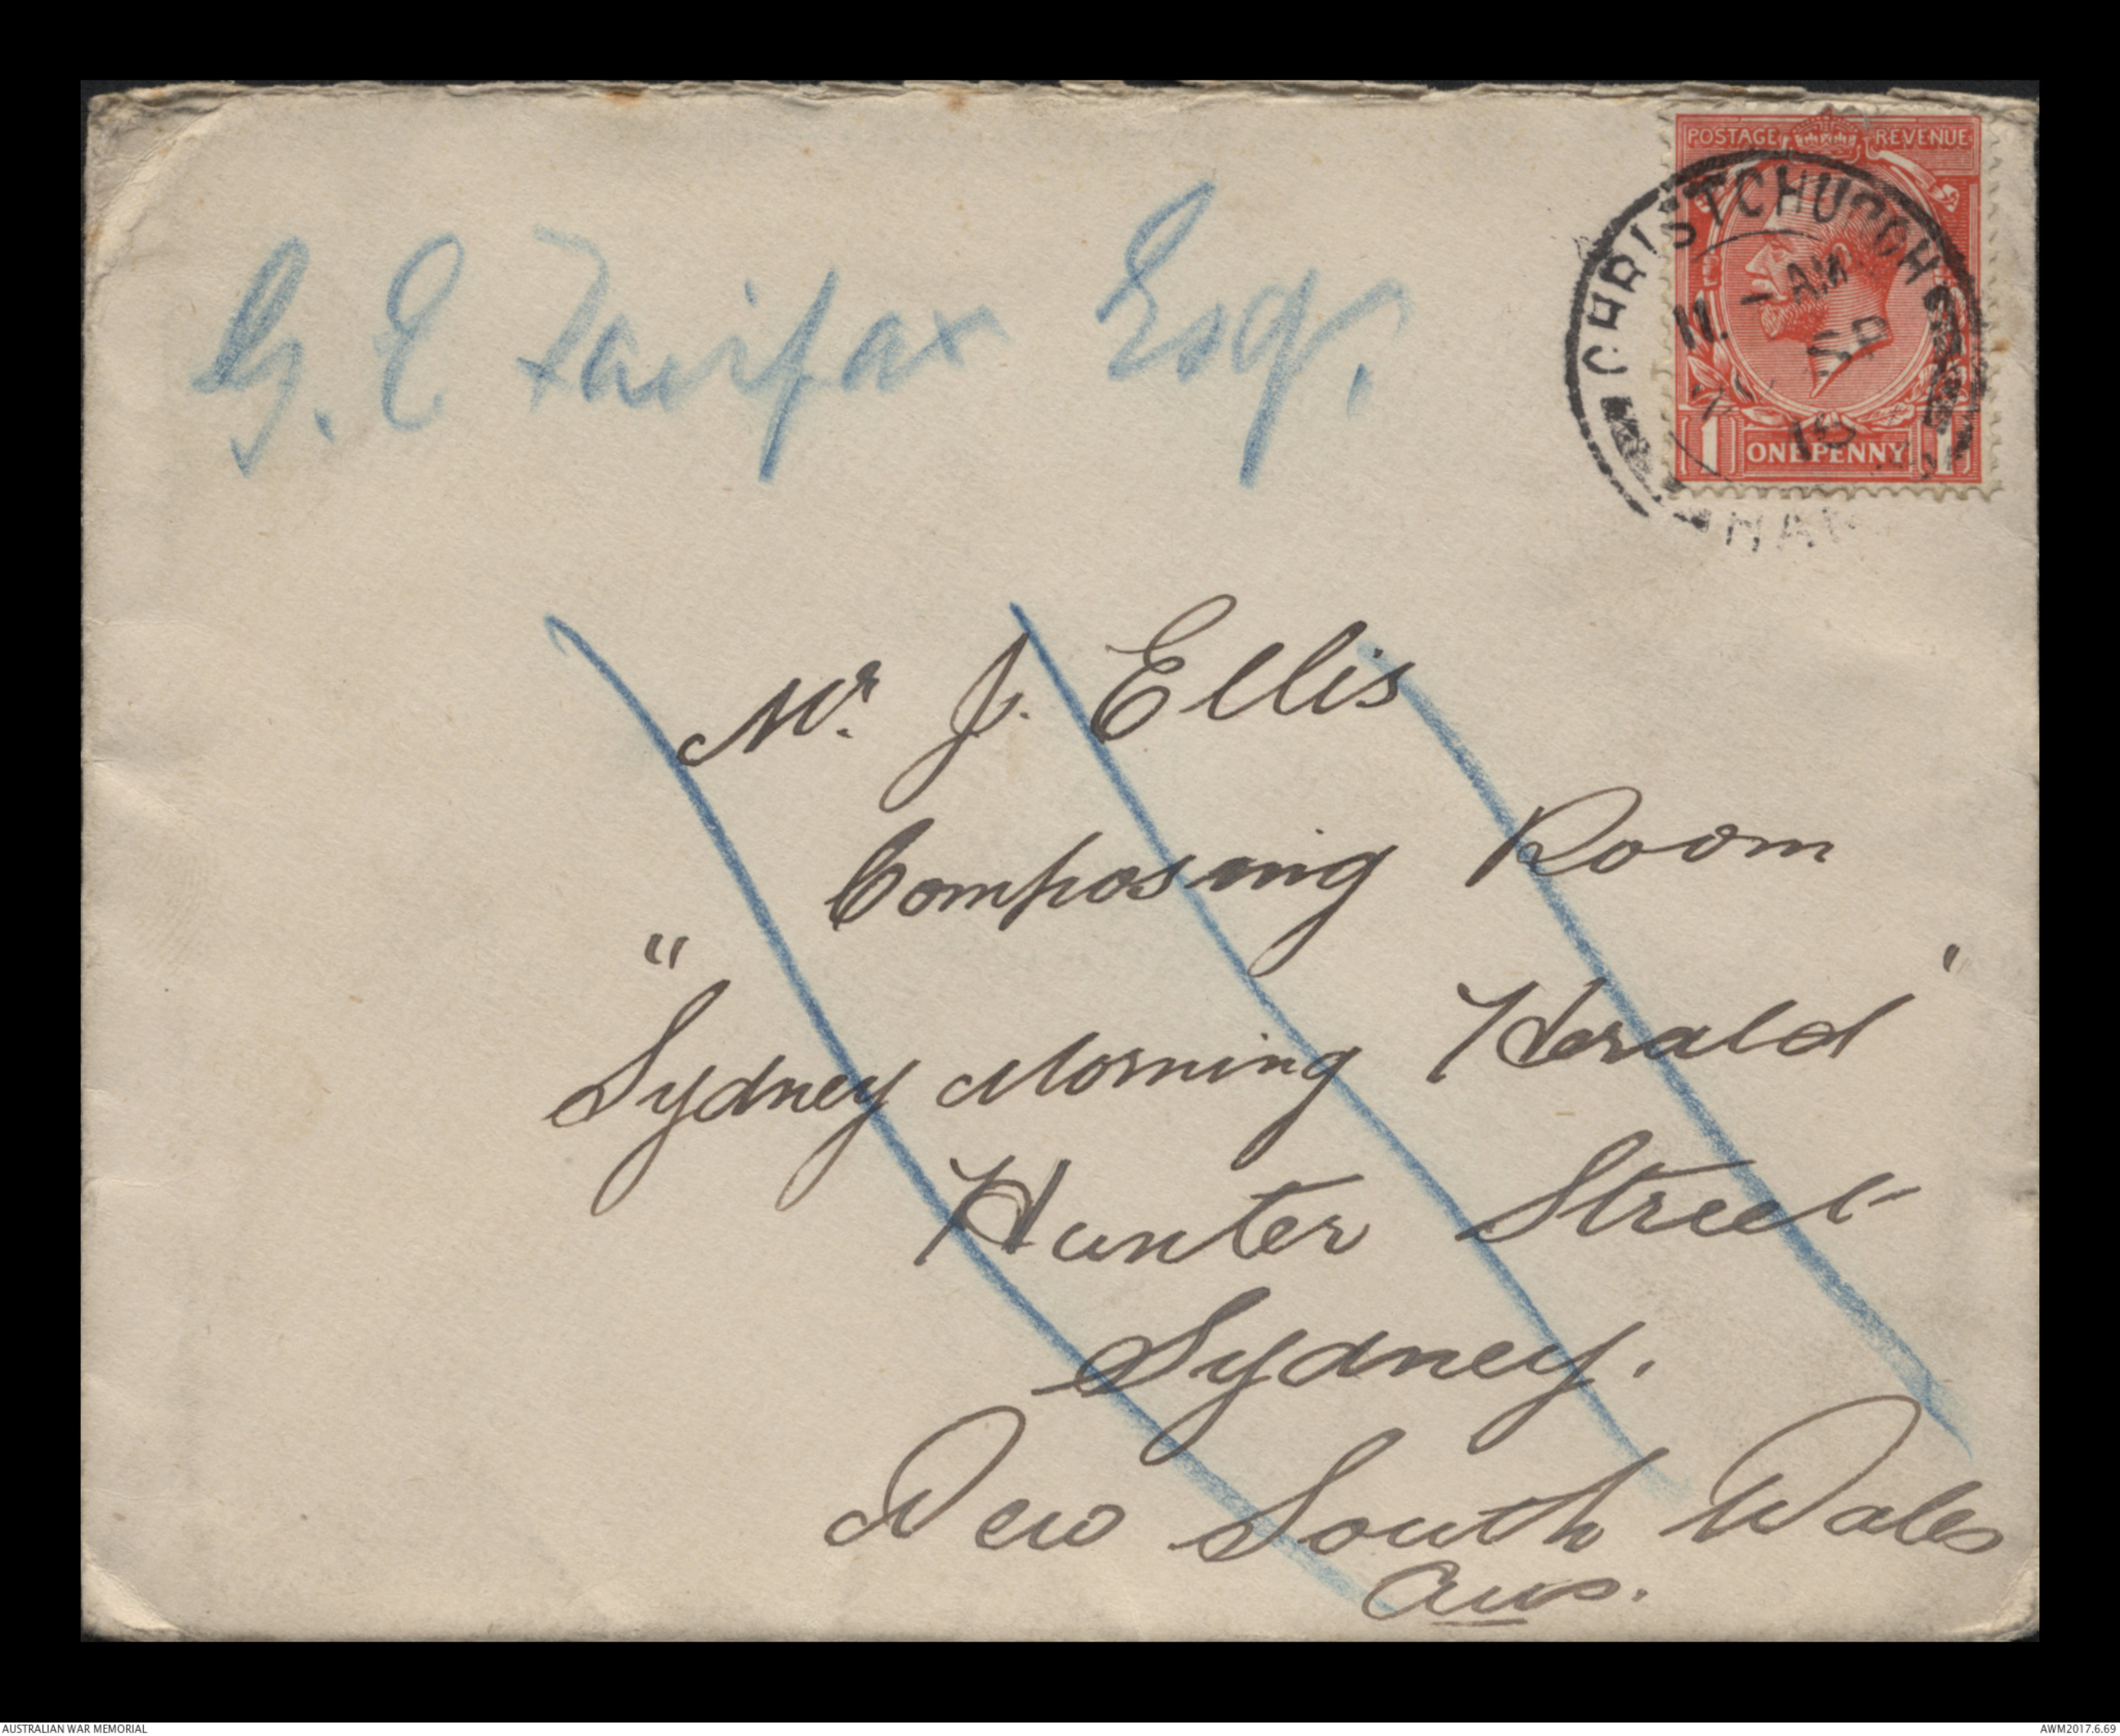 POSTAGE REVENUE
CHRISTCHURCH
11. - AM
SP
15
1 ONE PENNY 1
HAN
G. E Fairfax Esq.
Mr. J. Ellis
Composing Room
"Sydney Morning Herald"
Hunter Street
Sydney.
New South Wales
Aus.
AUSTRALIAN WAR MEMORIAL
AWM2017.6.69